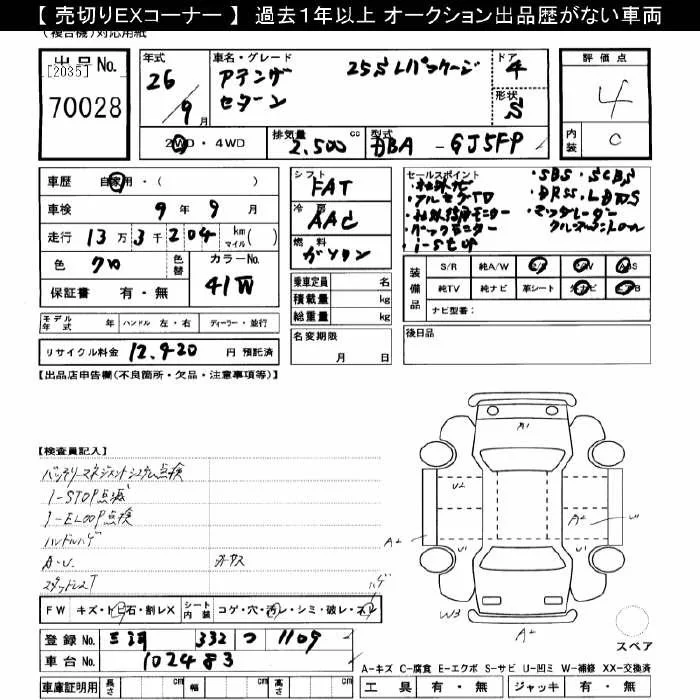 【 売切りEXコーナー 】 過去1年以上 オークション出品歴がない車両
(複合機)対応用紙
出品 No.
[2035]
70028
年式 26 / 9 月
車名・グレード アテンザ セダン 25S Lパッケージ
ドア 4
形状 S
評価点 4
内装 C
2WD・4WD
排気量 2,500 cc
型式 DBA - GJ5FP
車歴 自家用・( )
車検 9 年 9 月
走行 13 万 3 千 204 km マイル( )
色 クロ 色替 カラーNo. 41W
保証書 有・無
シフト FAT
冷房 AAC
燃料 ガソリン
乗車定員 名
積載量 kg
総重量 kg
セールスポイント
・社外ナビ
・フルセグTD
・バックモニター
・i-STOP
・SBS・SCBS
・DRSS・LDWS
・マツダレーダー
クルーズコントロール
装備品 S/R 純A/W AS
純TV 純ナビ 革シート
ナビ型番:
モデル年式 年 ハンドル 左・右 ディーラー・並行
リサイクル料金 12,920 円 預託済
名変期限 月 日
後日品
【出品店申告欄(不良箇所・欠品・注意事項等)】
【検査員記入】
バッテリーマネジメントシステム点検
i-STOP点滅
i-ELOOP点検
ハンドルハゲ
A・U.
スタッドレスT
ハゲ
FW キズ・トビ石・割レX シート内装 コゲ・穴・汚レ・シミ・破レ・スレ
登録 No. 三河 332 つ 1109
車台 No. 102483
車庫証明用 長さ cm 幅 cm 高さ cm
A1
U2
A2
U1
A2
U1
U1
W3
A2
スペア
A-キズ C-腐食 E-エクボ S-サビ U-凹ミ W-補修 XX-交換済
工具 有・無 ジャッキ 有・無